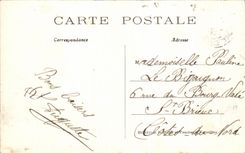 CARTE POSTALE
Correspondance
Adresse
Mademoiselle Pauline
Le
6 rue du Bourg
St Brieuc
Côtes du Nord
Bons baisers